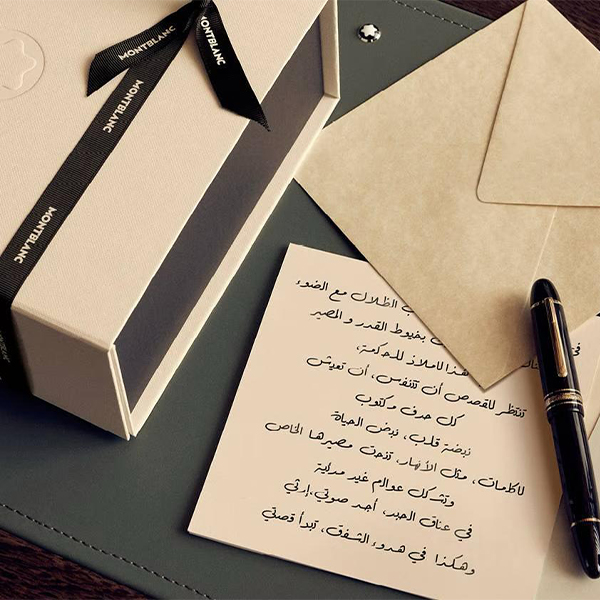 MONTBLANC
MONTBLANC
MONTBLANC
MONTBLANC
MONTBLANC
الظلال مع الضوء
بخيوط القدر و المصير
هذا لاملاذ للحكمة،
تنتظر لاقصص أن تتنفس، أن تعيش
كل حرف مكتوب
نبضة قلب، نبض الحياة
لاكلمات، مثل الأنهار، تنحت مصيرها الخاص
وتشكل عوالم غير مرئية
في عناق الحبر، أجد صوتي،إرثي
وهكذا في هدوء الشفق، تبدأ قصتي